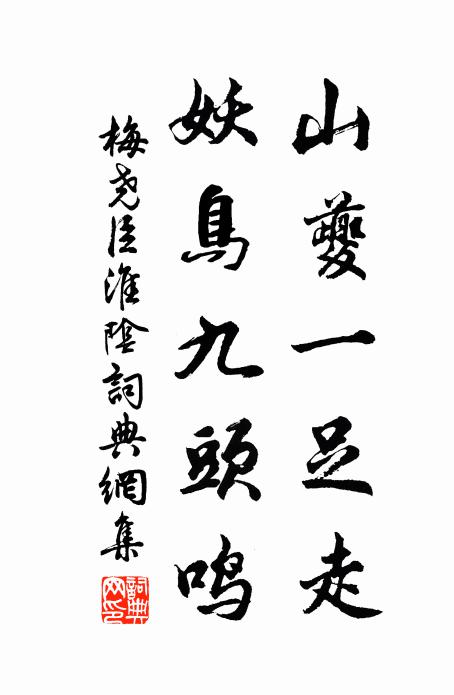 山夔一足走
妖鳥九頭鳴
梅堯臣淮陰詞典網集
詞典網印